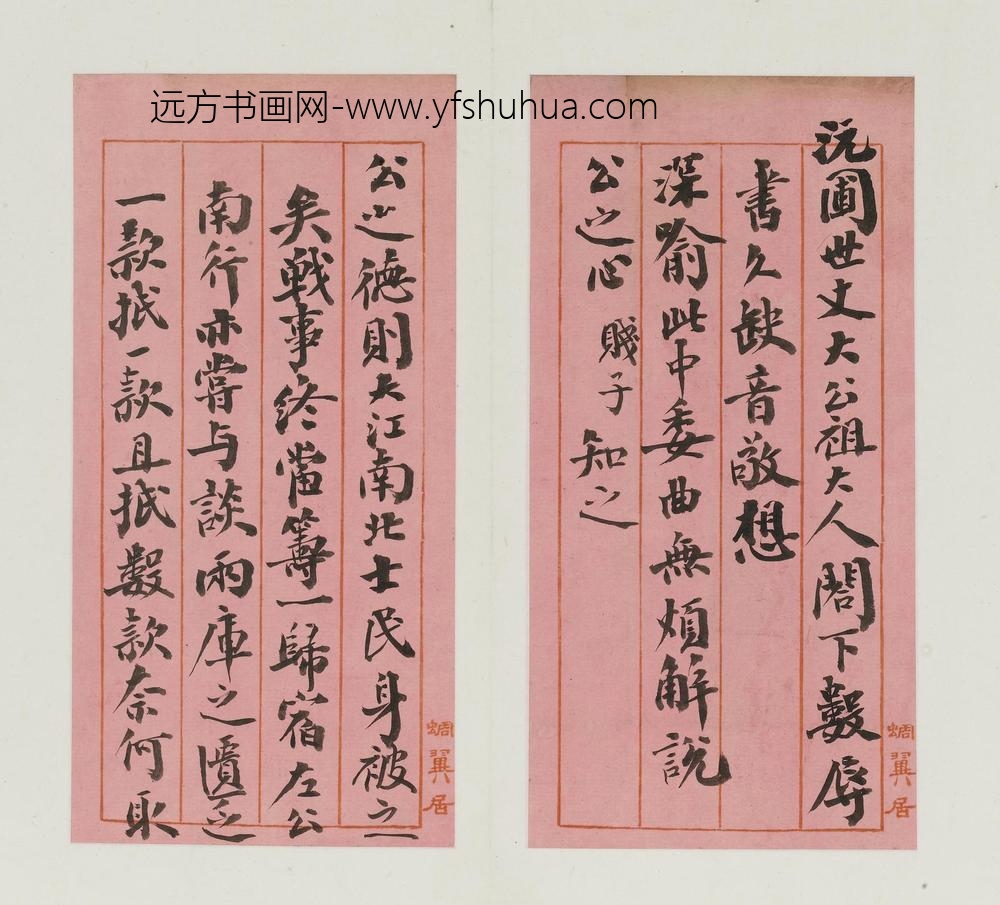 远方书画网-www.yfshuhua.com
沅圃世丈大公祖大人閤下數辱
書久缺音敬想
深喻此中委曲無煩解說
公之心 賤子 知之
蜩翼居
公之德則大江南北士民身被之
矣戰事終當籌一歸宿左公
南行亦嘗与談兩庫之匱乏
一款抵一款且抵數款奈何取
蜩翼居